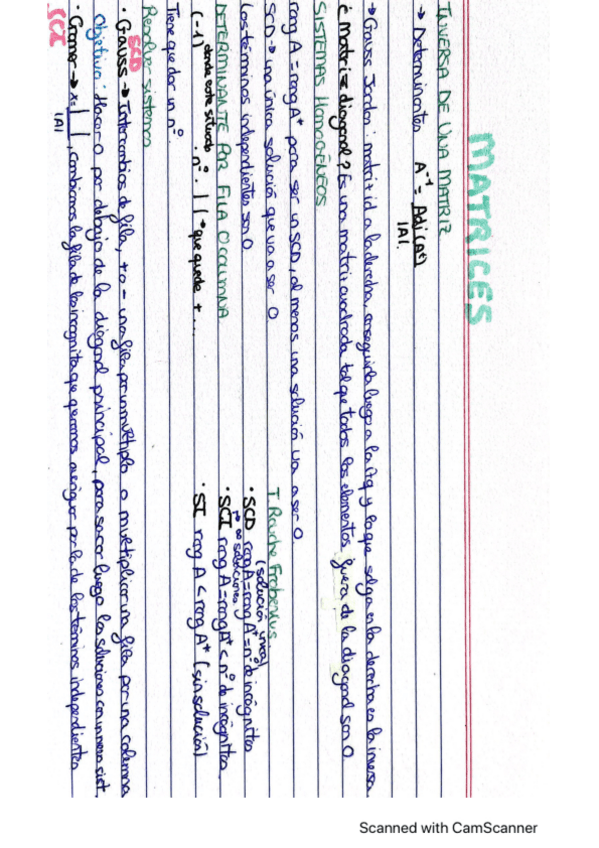 MATRICES
INVERSA DE UNA MATRIZ
→ Determinantes A⁻¹ = Adj(Aᵗ) / |A|.
→ Gauss Jordan: matriz id a la derecha, conseguirla luego a la izq y la que salga en la derecha es la inversa
¿Matriz diagonal? Es una matriz cuadrada tal que todos los elementos fuera de la diagonal son 0
SISTEMAS HOMOGÉNEOS
rang A = rang A* para ser un SCD, al menos una solución va a ser 0.
SCD → una única solución que va a ser 0
Los términos independientes son 0
T. Rouche Frobenius
(solución única)
· SCD rang A = rang A* = nº de incógnitas
→ ∞ soluciones
· SCI rang A = rang A* < nº de incógnitas.
· SI rang A < rang A* (sin solución)
DETERMINANTE POR FILA O COLUMNA
(-1) donde este situado · nº · | | → que quede + ...
Tiene que dar un nº.
Resolver sistemas
SCD
· Gauss → Intercambios de fila, + o - una fila por un multiplo o multiplicar una fila por una columna
Objetivo: Hacer 0 por debajo de la diagonal principal, para sacar luego las soluciones con un sist.
· Cramer → x = | | / |A| , cambiamos la fila de la incognita que queremos averiguar por la de los términos independientes
SCI
Scanned with CamScanner